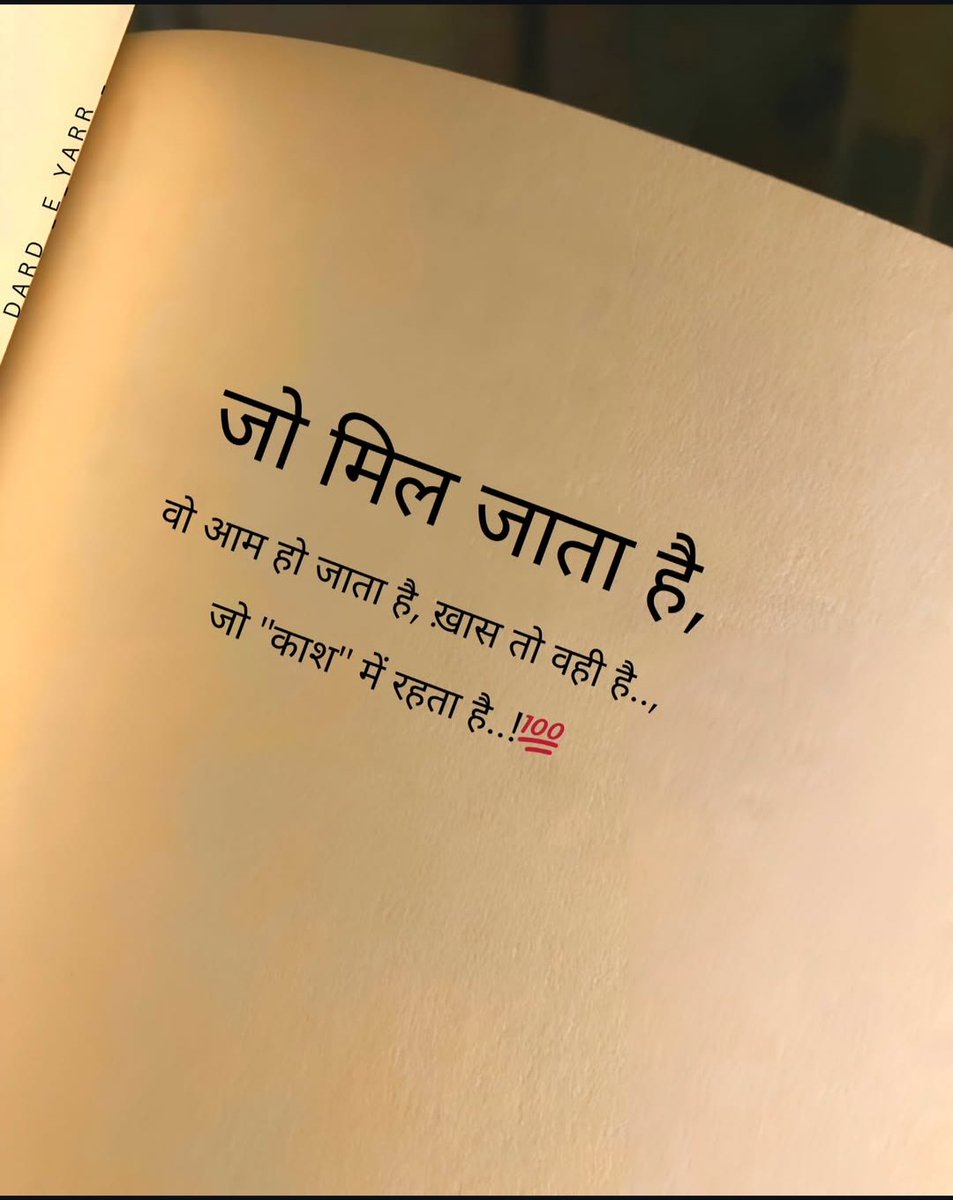 DARD - E - YARR -
जो मिल जाता है,
वो आम हो जाता है, ख़ास तो वही है..,
जो "काश" में रहता है..!💯